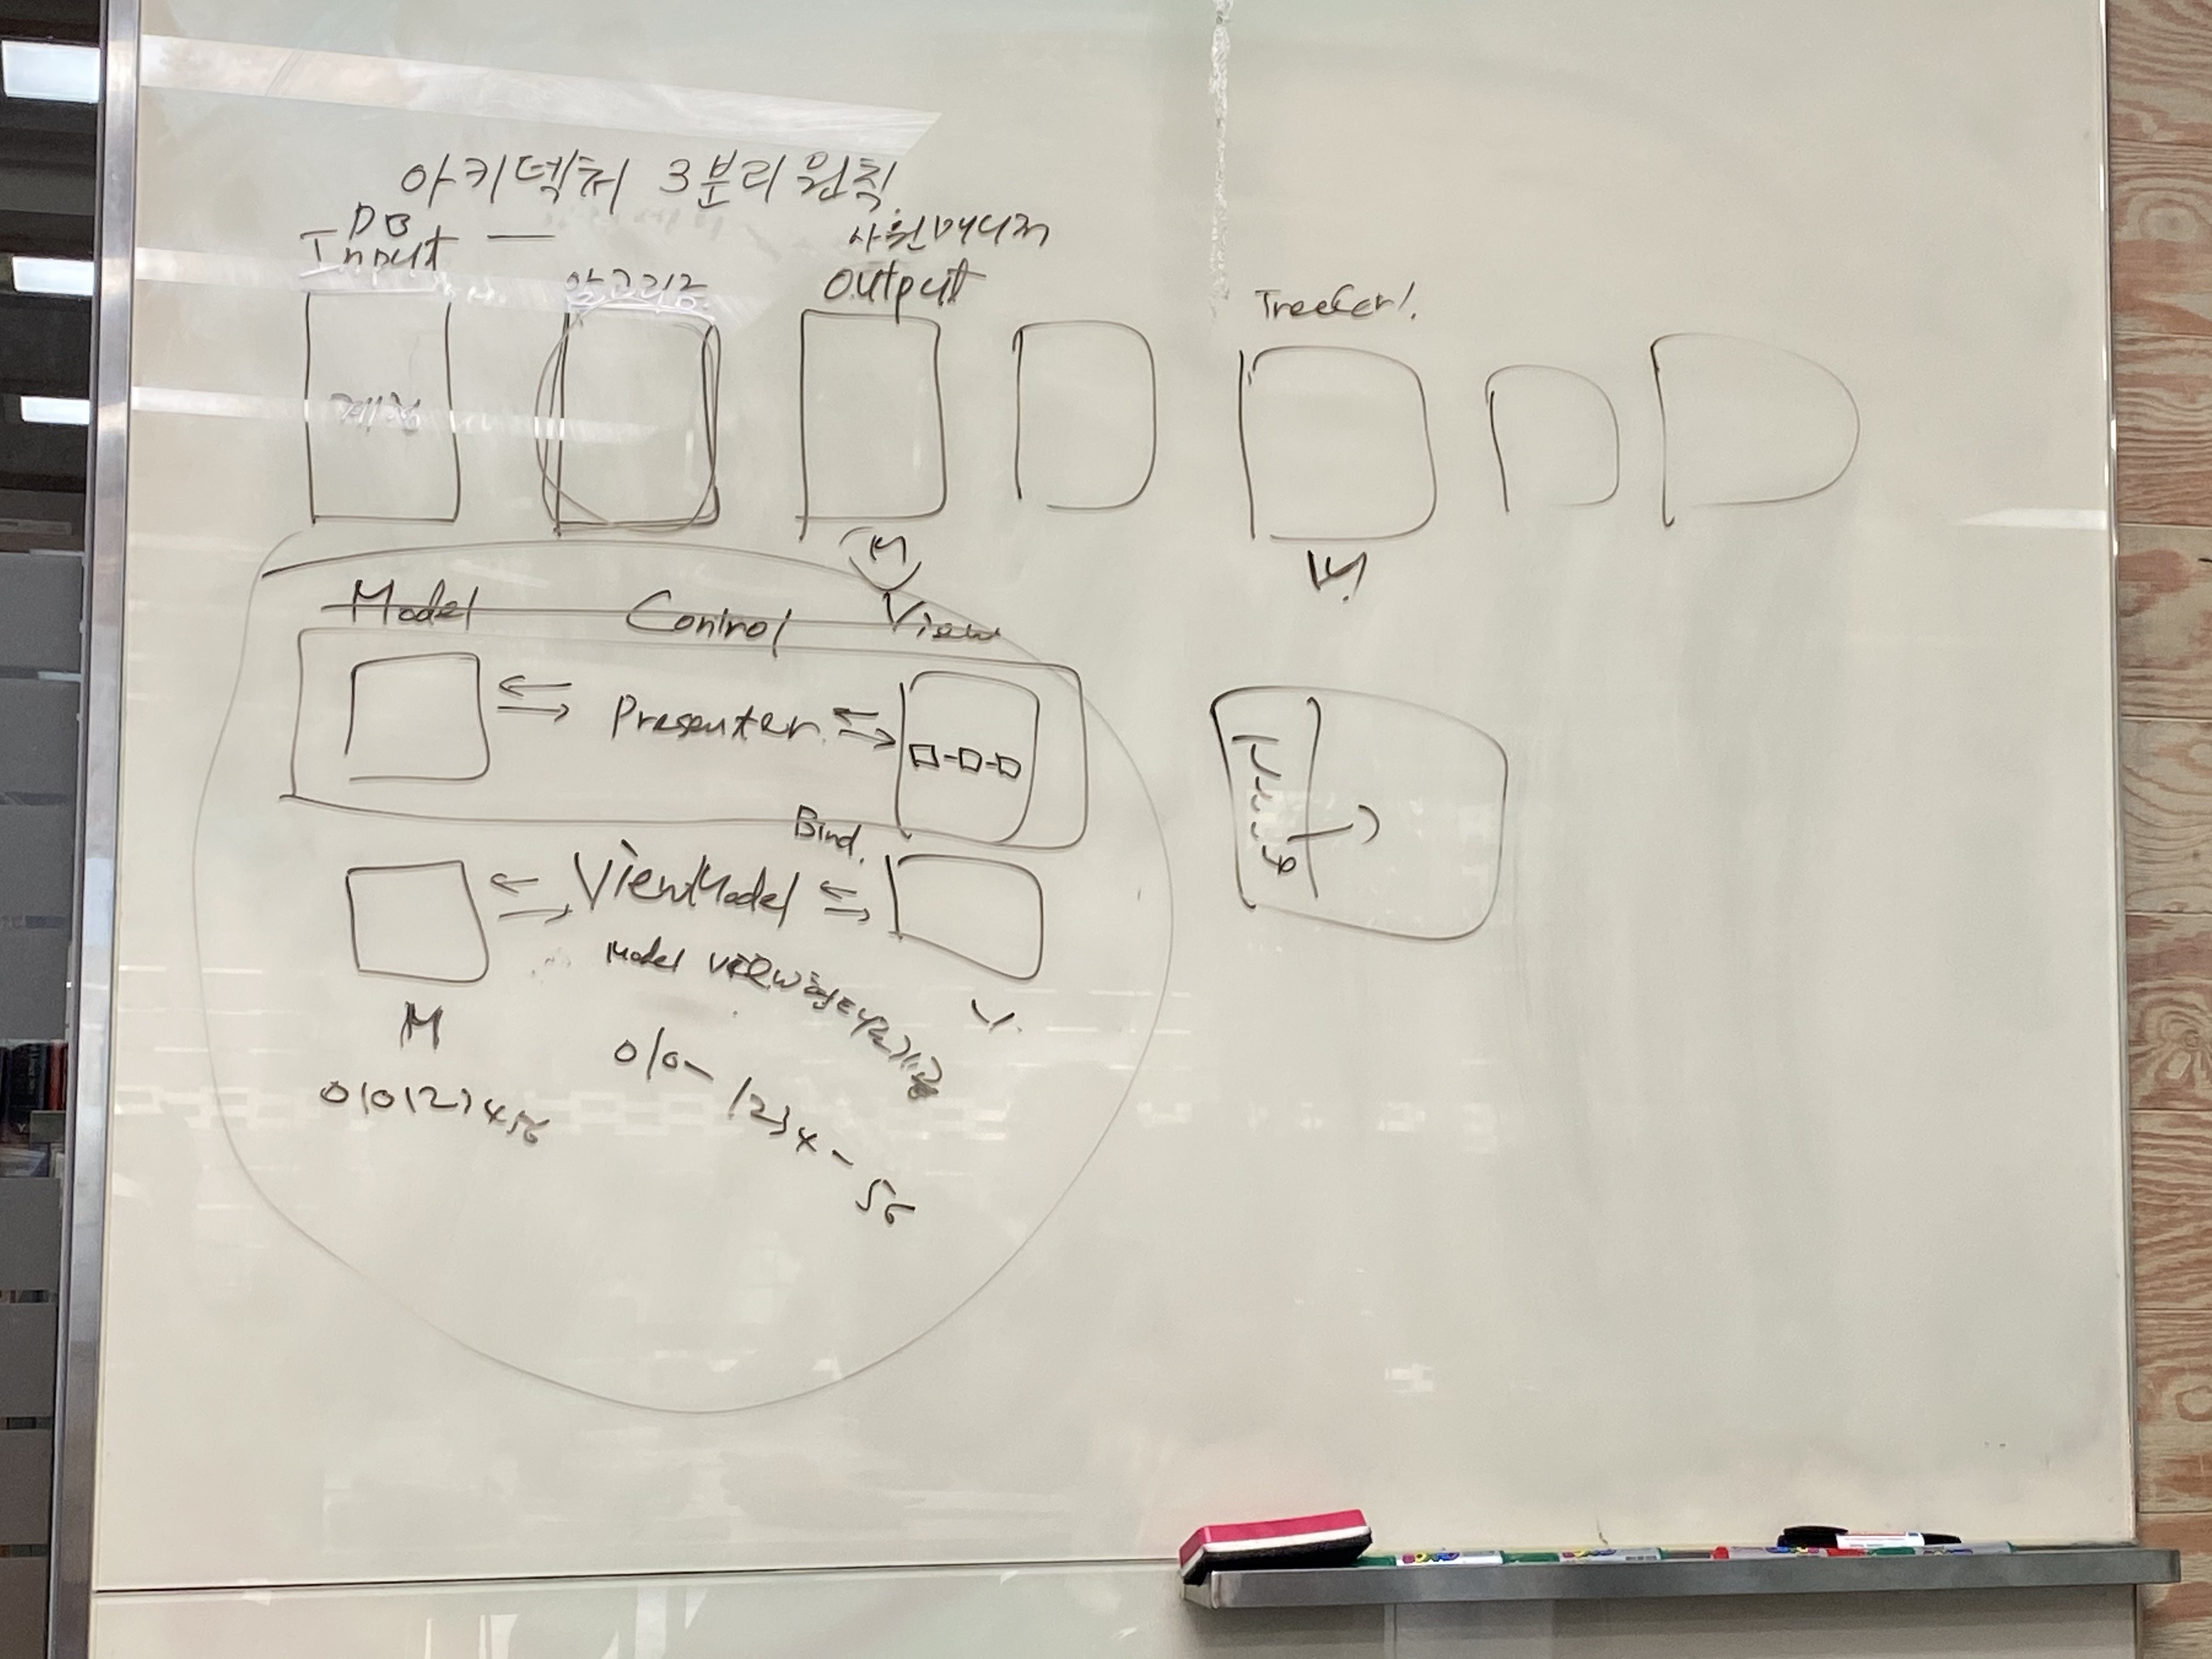 아키텍처 3분리 원칙.
DB
Input —
사원매니저
output
알고리즘
계정
M
Model Control View
Presenter.
Bind.
ViewModel
Model View형태로가공
M
V.
010123456
010- 1234-56